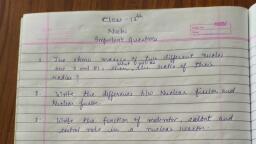 Class - 12th
Nuclei
Important Questions
1 The atomic masses of two different nuclei
are and 81, the ratio of their
radius ?
2 Write the difference b/w Nuclear fission and
Nuclear fusion.
3 Write the function of moderator, coolant and
control rods in a nuclear reactor.